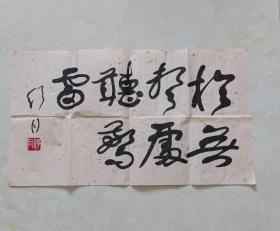 於無
聲處
聽驚
雷